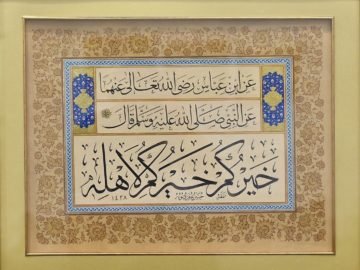 عن ابن عباس رضي الله تعالى عنهما
عن النبي صلى الله عليه وسلم قال
خيركم خيركم لأهله
١٤٢٨